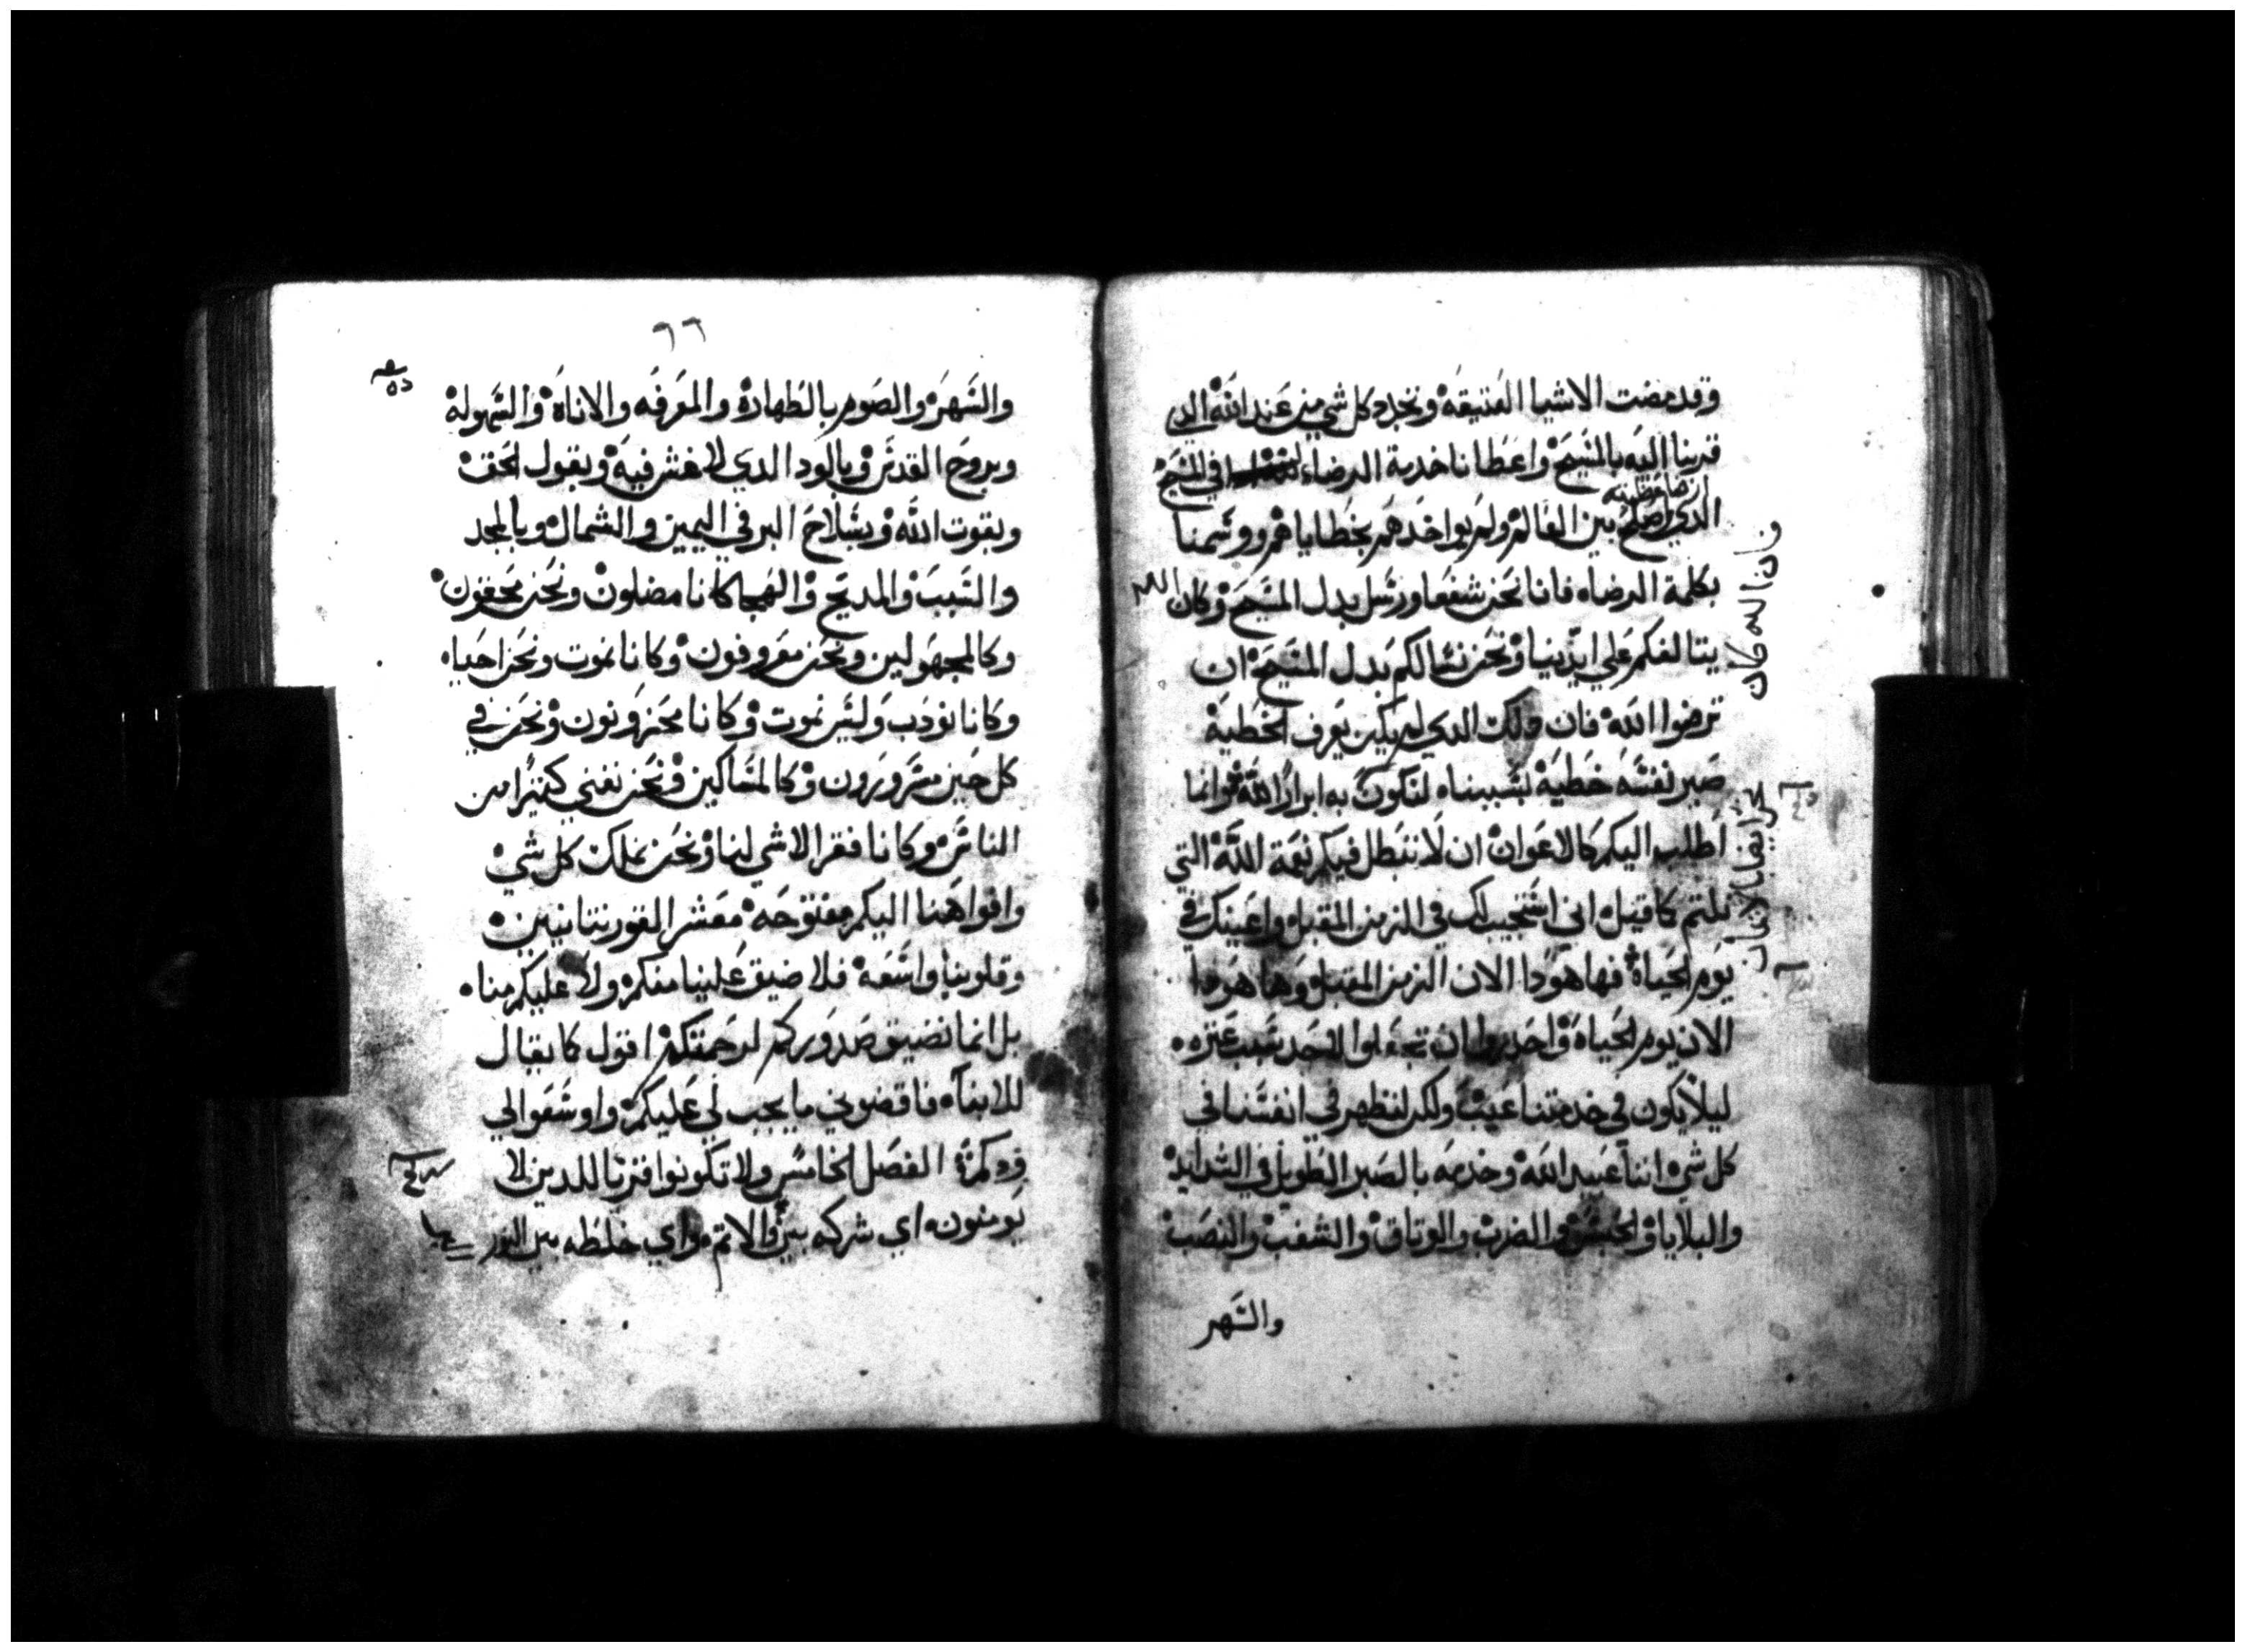 وقد مضت الاشيا العتيقه وتجدد كل شي من عند الله الدي
قربنا اليه بالمسيح واعطانا خدمة الرضاء في المسيح
الدي اصلح بين العالم ولم يواخدهم بخطاياهم ووسمنا
بكلمة الرضاه فانا نحن شفعا ورسل بدل المسيح وكان الله
يتالفكم علي ايدينا ونحن نسالكم بدل المسيح ان
ترضوا الله فان دلك الدي لم يكن يعرف الخطية
صير نفسه خطية بسببناه لنكون به ابرارا لله وانما
اطلب اليكم كالاعوان ان لا تبطل فيكم نعمة الله التي
نلتم كما قيل اني استجيب لك في الزمن المقبل واعينك في
يوم الحياة فها هودا الان الزمن المقبل وها هودا
الان يوم الحياة واحدروا ان تجعلوا لاحد سبب عتره
ليلا يكون في خدمتنا عيب ولكن لنظهر في انفسنا في
كل شي اننا عبيد الله وخدمه بالصبر الطويل في الشدايد
والبلايا والحبس والضرب والوتاق والشغب والنصب
والسهر
فاننا لله كان
٦٦
والسهر والصوم بالطهارة والمعرفه والاناة والسهولة
وبروح القدس وبالود الدي لا غش فيه وبقول الحق
وبقوت الله وبسلاح البر في اليمين والشمال وبالمجد
والسب والمديح والهجا كانا مضلون ونحن محقون
وكالمجهولين ونحن معروفون وكانا نموت ونحن احياه
وكانا نودب وليس نموت وكانا محزونون ونحن في
كل حين مسرورون وكالمساكين ونحن نغني كتيرا من
الناس وكانا فقرا لاشي لنا ونحن نملك كل شي
وافواهنا اليكم مفتوحه معشر القورنتانيين
وقلوبنا واسعه فلا ضيق علينا منكم ولا عليكم مناه
بل انما تضيق صدوركم لرحمتكم اقول كما يقال
للابناه فاقضوني ما يجب لي عليكم واوسعوا لي
ودكم الفصل الخامس ولا تكونوا قرنا للدين لا
يومنون اي شركه بين البر والاتم واي خلطه بين النور